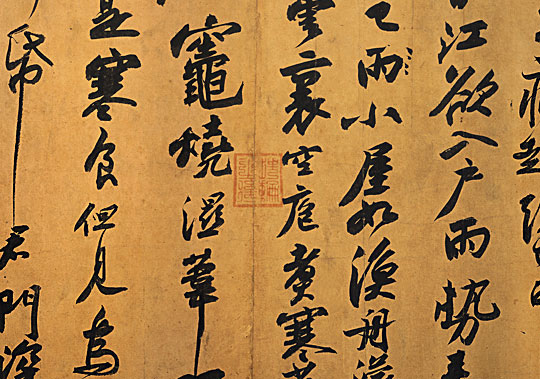 病起
江欲入戶雨勢來
已雨小屋如漁舟濛
雲裏空庖煮寒菜
竈燒濕葦
是寒食但見烏
帋君門深